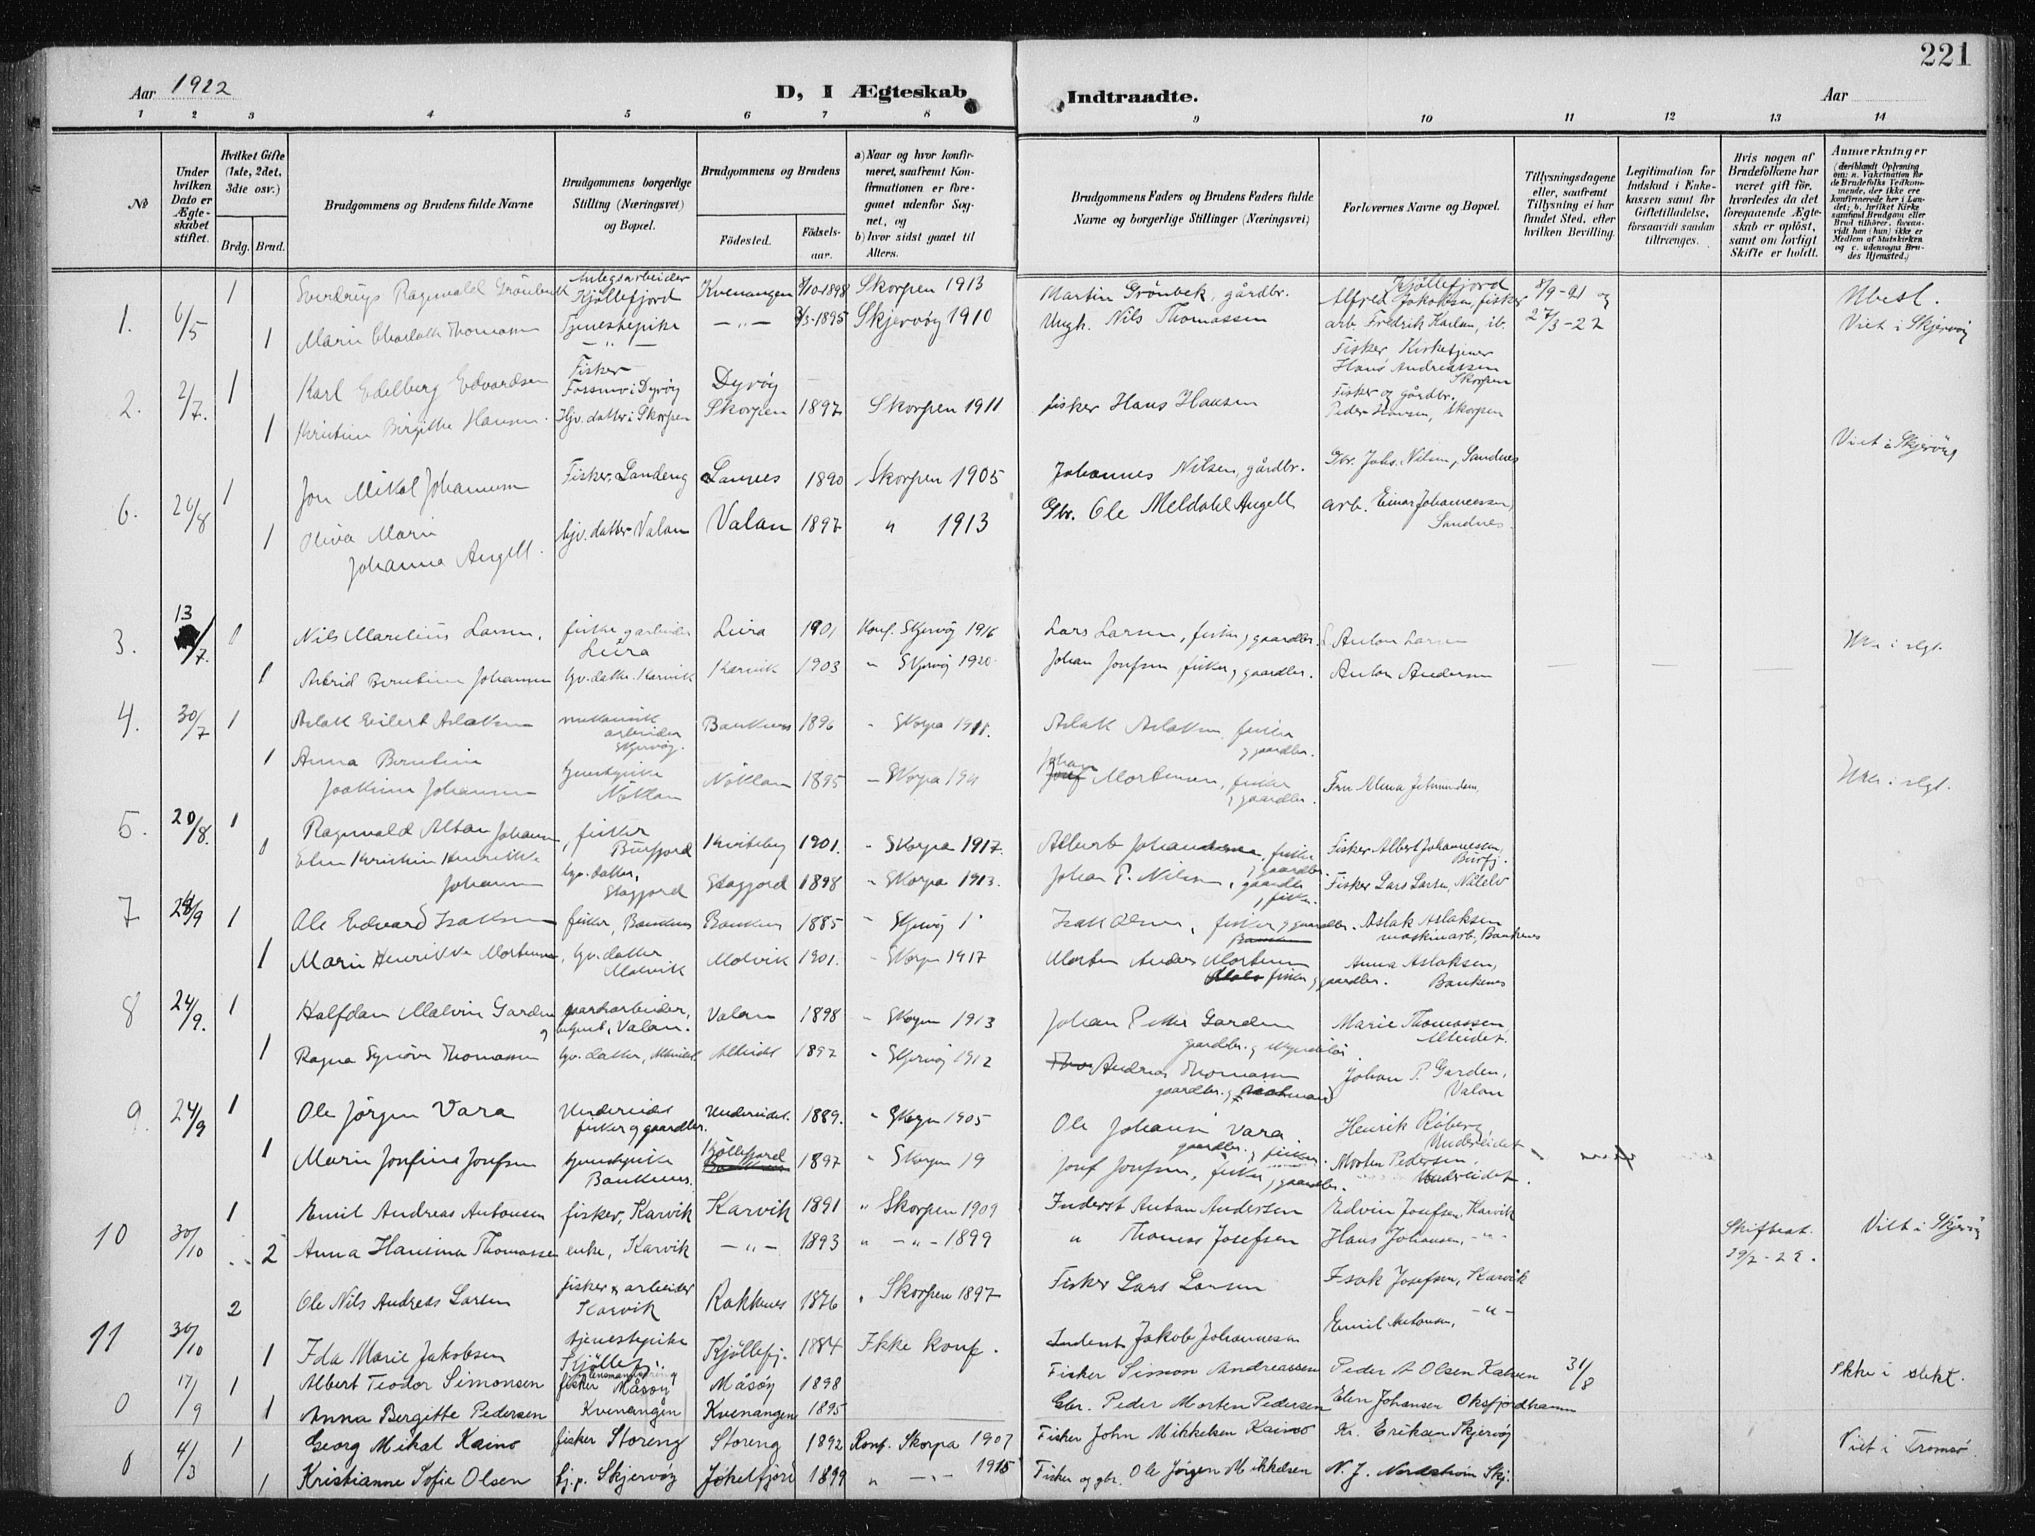 221
Aar 1922
D, I Ægteskab Indtraadte.
Aar
1 2 3 4 5 6 7 8 9 10 11 12 13 14
No
Under hvilken Dato er Ægteskabet stiftet.
Hvilket Gifte (1ste, 2det, 3die osv.)
Brdg. Brud.
Brudgommens og Brudens fulde Navne
Brudgommens borgerlige Stilling (Næringsvei) og Bopæl.
Brudgommens og Brudens
Födested. Födselsaar.
a) Naar og hvor konfirmeret, saafremt Konfirmationen er foregaaet udenfor Sognet, og
b) hvor sidst gaaet til Alters.
Brudgommens Faders og Brudens Faders fulde Navne og borgerlige Stillinger (Næringsvei)
Forlovernes Navne og Bopæl.
Tillysningsdagene eller, saafremt Tillysning ei har fundet Sted, efter hvilken Bevilling.
Legitimation for Indskud i Enkekassen samt for Giftetilladelse, forsaavidt saadan tiltrænges.
Hvis nogen af Brudefolkene har været gift før, hvorledes da det foregaaende Ægteskab er oplöst, samt om lovligt Skifte er holdt.
Anmærkninger
(deriblandt Oplysning om: a. Vakcination for de Brudefolks Vedkommende, der ikke ere konfirmerede her i Landet; b. hvilket Kirkesamfund Brudgom eller Brud tilhörer, forsaavidt han (hun) ikke er Medlem af Statskirken og c. udensogns Brudes Hjemsted.)
1. 6/5 1 Sverdrups Ragnvald Grönbek Anlegsarbeider Kjöllefjord Kvenangen 8/10-1898 Skorpen 1913 Martin Grönbek, gårdbr. Alfred Jakobsen, fisker Kjöllefjord 8/9-21 og Ubesl.
1 Marie Charlotte Thomassen Tjenestepike - " - - " - 3/3-1895 Skjervöy 1910 Ungk. Nils Thomassen arb. Fredrik Karlsen, ib. 27/3-22 Viet i Skjervöy
2. 2/7. 1 Karl Edelberg Edvardsen Fisker Fossmo i Dyröy Dyröy Fisker, Kirketjener Hans Andreassen Skorpen
1 Kristine Birgitte Hansen. Hjv. datter i Skorpen Skorpen 1897 Skorpen 1911 fisker Hans Hansen Fisker og gårdbr. Peder Hansen, Skorpen
Viet i Skjervöy
6. 26/8 1 Jon Mikal Johannesen Fisker, Sandeng 1890 Skorpen 1905 Johannes Nilsen, gårdbr. Gbr. Johs. Nilsen, Sandnes
1 Oliva Marie Johanna Angell. hjv. datter Valan Valan 1897 " 1913 Gbr. Ole Meldahl Angell arb. Einar Johannessen, Sandnes.
3. 13/7. 1 Nils Marelius Larsen, fisker og arbeider Leira Leira 1901 Konf. Skjervöy 1916 Lars Larsen, fisker, gaardbr. Anton Larsen Ikke i slgt.
1 Astrid Berntine Johansen hjv. datter. Karvik Karvik 1903 " Skjervöy 1920. Johan Josefsen fisker, gaardbr. Anton Andersen
4. 30/7 1 Aslak Eilert Aslaksen mekanisk arbeider Skjervöy. Baukenes 1896 " Skorpa 1911. Aslak Aslaksen, fisker, gaardbr.
1 Anna Berntine Joakime Johansen tjenestepike Nöklan Nöklan 1895 - Skorpa 191 Johan Mortensen, fisker, gaardbr. Ikke i slgt.
5. 20/8. 1 Ragnvald Alban Johansen, fisker Burfjord Kviteberg 1901. " Skorpa 1917. Albert Johannessen, fisker, gaardbr. Fisker Albert Johannessen, Burfj.
1 Elen Kristine Henrikke Johansen hjv. datter, Stagfjord Stagfjord 1898 " Skorpa 1913. Johan P. Nilsen, gaardbr., fisker. Fisker Lars Larsen, Nälelv
7 24/9 1 Ole Edvard Isaksen fisker, Baukenes Baukenes 1885 " Skjervöy 1 Isak Olsen, fisker, gaardbr. Aslak Aslaksen maskinarb., Baukenes
1 Marie Henrikke Mortensen, hjv. datter Molvik Molvik 1901. " Skorpen 1917 Morten Anders Mortensen fisker, gaardbr. Anna Aslaksen, Baukenes
8 24/9. 1 Halfdan Malvin Garden gaardsarbeider, Valan. Valan 1898 " Skorpen 1913 Johan Petter Garden gaardbr. Marie Thomassen, Alteidet.
1 Ragna Synöve Thomassen hjv. datter, Alteidet. Alteidet 1892 " Skjervöy 1912 Andreas Thomassen gaardbr. Johan P. Garden, Valan
9. 24/9 1 Ole Jörgen Vara Undereidet fisker og gaardbr. Undereidet. 1889. " Skorpen 1905 Ole Johansen Vara gaardbr. og fisker. Henrik Röberg Undereidet
1 Marie Josefine Josefsen tjenestepike Baukenes. Kjöllefjord 1897 " Skorpen 19 Josef Josefsen, fisker, gaardbr. Morten Pedersen, Undereidet.
10 30/10 1 Emil Andreas Antonsen fisker, Karvik Karvik 1891 " Skorpen 1909 Inderst Anton Andersen Edvin Josefsen, Karvik
2 Anna Hansina Thomassen enke, Karvik - " - 1893 " - " - 1899 " Thomas Josefsen Hans Johansen, - " - Skifteat. 29/2-22. Viet i Skjervöy
11 30/10 2 Ole Nils Andreas Larsen fisker & arbeider Karvik Rakkenes 1876 " Skorpen 1897 Fisker Lars Larsen Isak Josefsen, Karvik
1 Ida Marie Jakobsen tjenestepike Kjöllefj. Kjöllefj. 1884 Ikke konf. Inderst Jakob Johannessen Emil Antonsen, - " -
0 17/9 1 Albert Teodor Simonsen fisker Måsöy Måsöy 1898 Fisker Simon Andreassen Peder A Olsen 31/8 Ikke i slekt.
1 Anna Bergitte Pedersen Kvenangen Kvenangen 1895 Gbr. Peder Morten Pedersen Elen Johansen Oksfjordhamn
0 4/3 1 Georg Mikal Kainö fisker Storeng Storeng 1892 Konf. Skorpa 1907 Fisker John Mikkelsen Kainö Kr. Eriksen Skjervöy Viet i Tromsö.
1 Kristianne Sofie Olsen tj.p. Skjervöy Jökelfjord 1899 " - " - 1915 Fisker og gbr. Ole Jörgen Mikkelsen N. J. Nordström Skj.